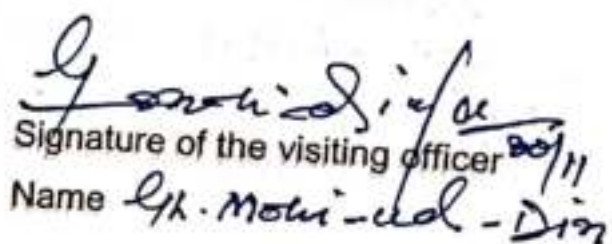 30/11
Signature of the visiting officer
Name Gh. Mohi-ud-Din